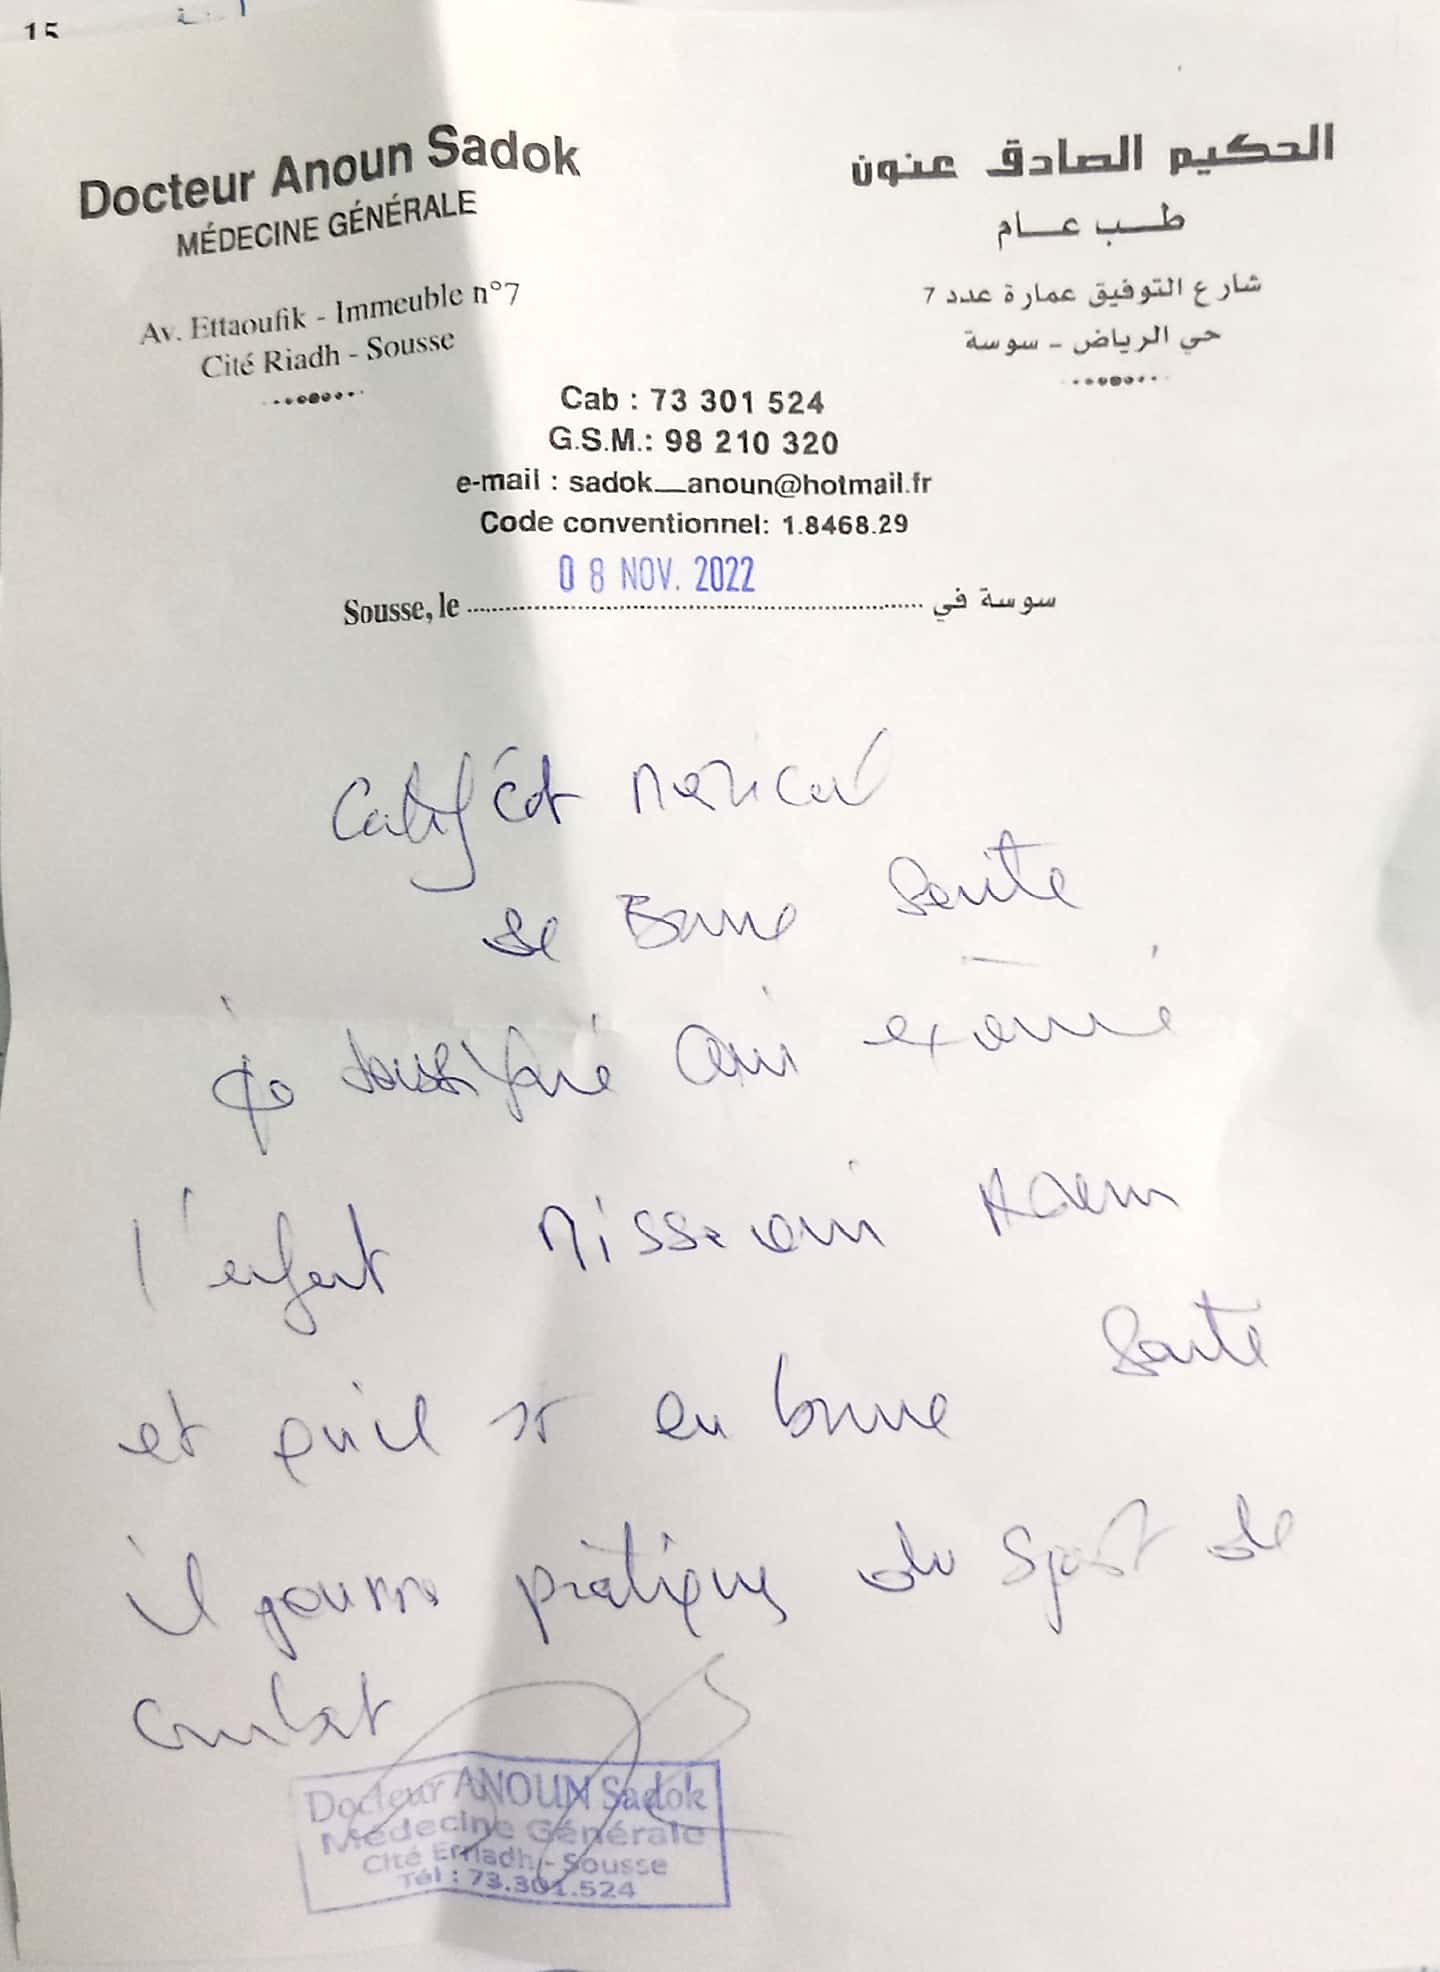 15
Docteur Anoun Sadok
MÉDECINE GÉNÉRALE
Av. Ettaoufik - Immeuble n°7
Cité Riadh - Sousse
الحكيم الصادق عنون
طب عام
شارع التوفيق عمارة عدد 7
حي الرياض - سوسة
Cab : 73 301 524
G.S.M.: 98 210 320
e-mail : sadok_anoun@hotmail.fr
Code conventionnel: 1.8468.29
08 NOV. 2022
Sousse, le سوسة في
Certificat medical
de Bonne Sante
examiné
l'enfant Missaoui
et qu'il est en bonne Sante
il pourra pratiquer du Sport de
combat
Docteur ANOUN Sadok
Médecine Générale
Cité Erriadh - Sousse
Tél : 73.301.524